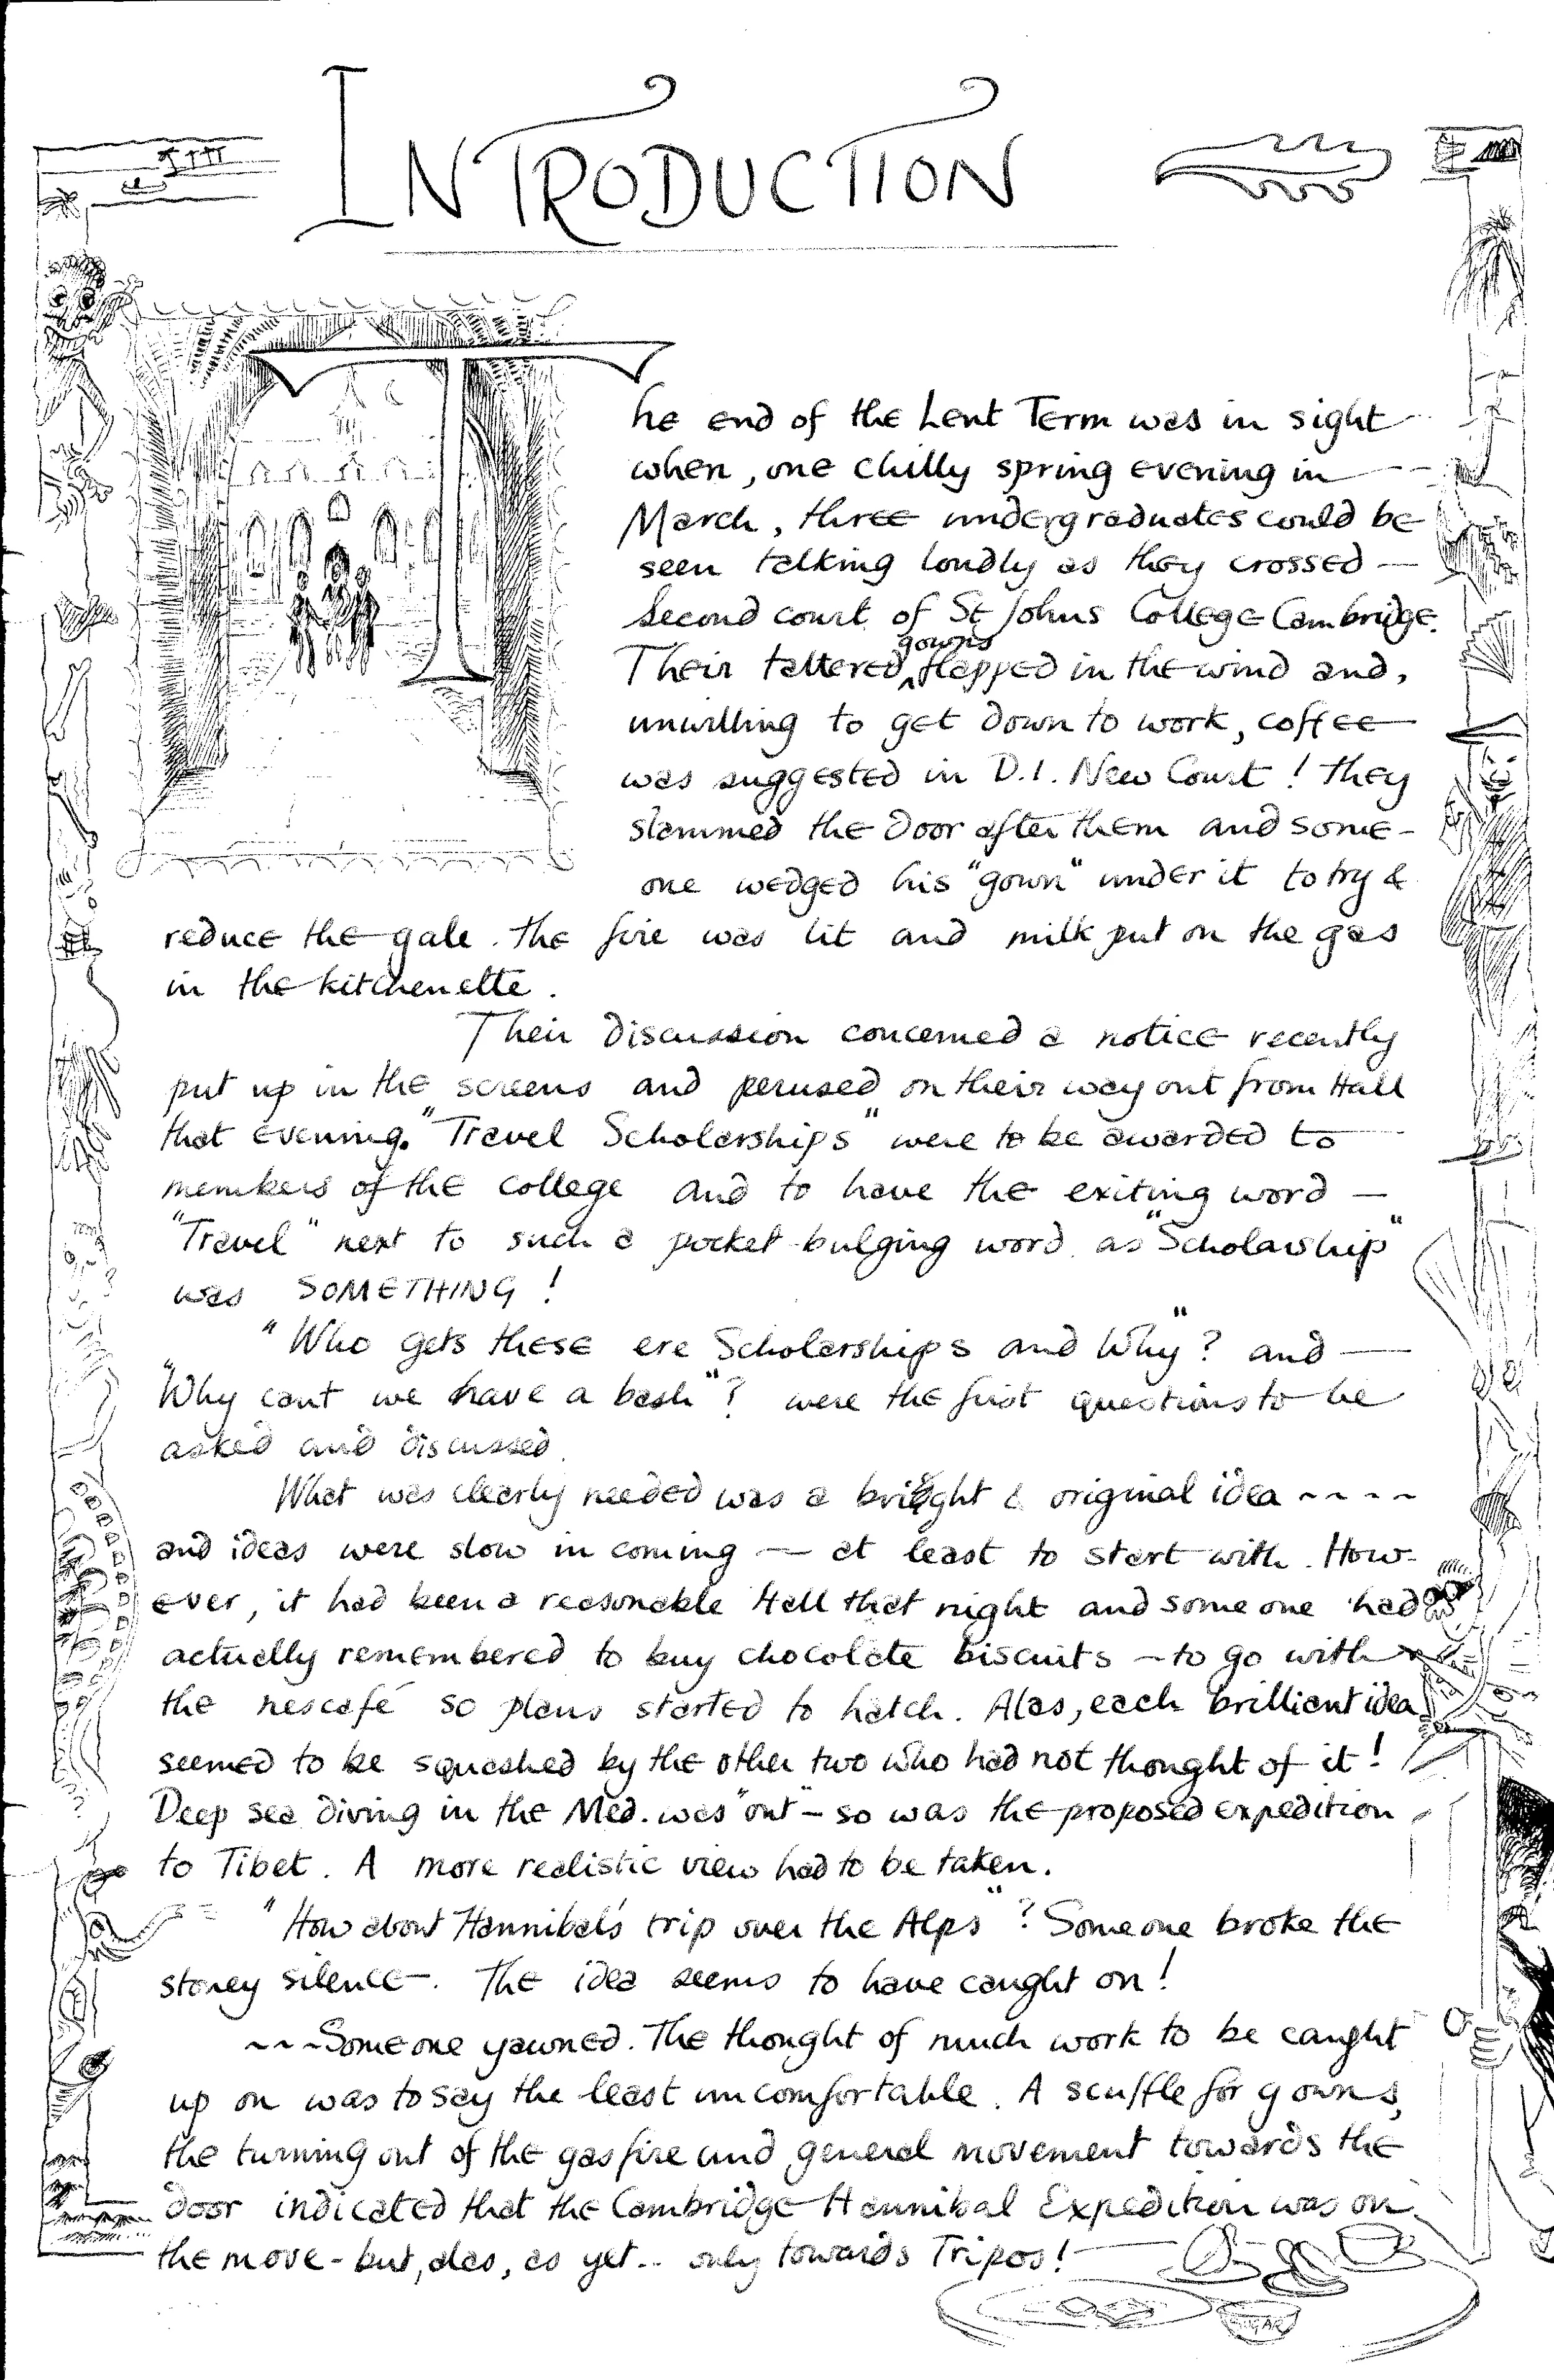 INTRODUCTION
The end of the Lent Term was in sight
when, one chilly spring evening in
March, three undergraduates could be
seen talking loudly as they crossed —
Second court of St Johns College Cambridge.
gowns
Their tattered ^ flapped in the wind and,
unwilling to get down to work, coffee
was suggested in D.1. New Court! They
slammed the door after them and some-
one wedged his "gown" under it to try &
reduce the gale. The fire was lit and milk put on the gas
in the kitchenette.
Their discussion concerned a notice recently
put up in the screens and perused on their way out from Hall
that evening. "Travel Scholarships" were to be awarded to
members of the college and to have the exiting word —
"Travel" next to such a pocket-bulging word as "Scholarship"
was SOMETHING!
"Who gets these ere Scholarships and Why"? and —
"Why cant we have a bash"? were the first questions to be
asked and discussed.
What was clearly needed was a bright & original idea ~~~~
and ideas were slow in coming — at least to start with. How-
ever, it had been a reasonable Hall that night and someone had
actually remembered to buy chocolate biscuits – to go with
the nescafé so plans started to hatch. Alas, each brilliant idea
seemed to be squashed by the other two who had not thought of it!
Deep sea diving in the Med. was "out" – so was the proposed expedition
to Tibet. A more realistic view had to be taken.
"How about Hannibal's trip over the Alps"? Someone broke the
stoney silence. The idea seems to have caught on!
~~~Someone yawned. The thought of much work to be caught
up on was to say the least uncomfortable. A scuffle for gowns,
the turning out of the gas fire and general movement towards the
door indicated that the Cambridge Hannibal Expedition was on
the move - but, alas, as yet.. only towards Tripos!
SUGAR